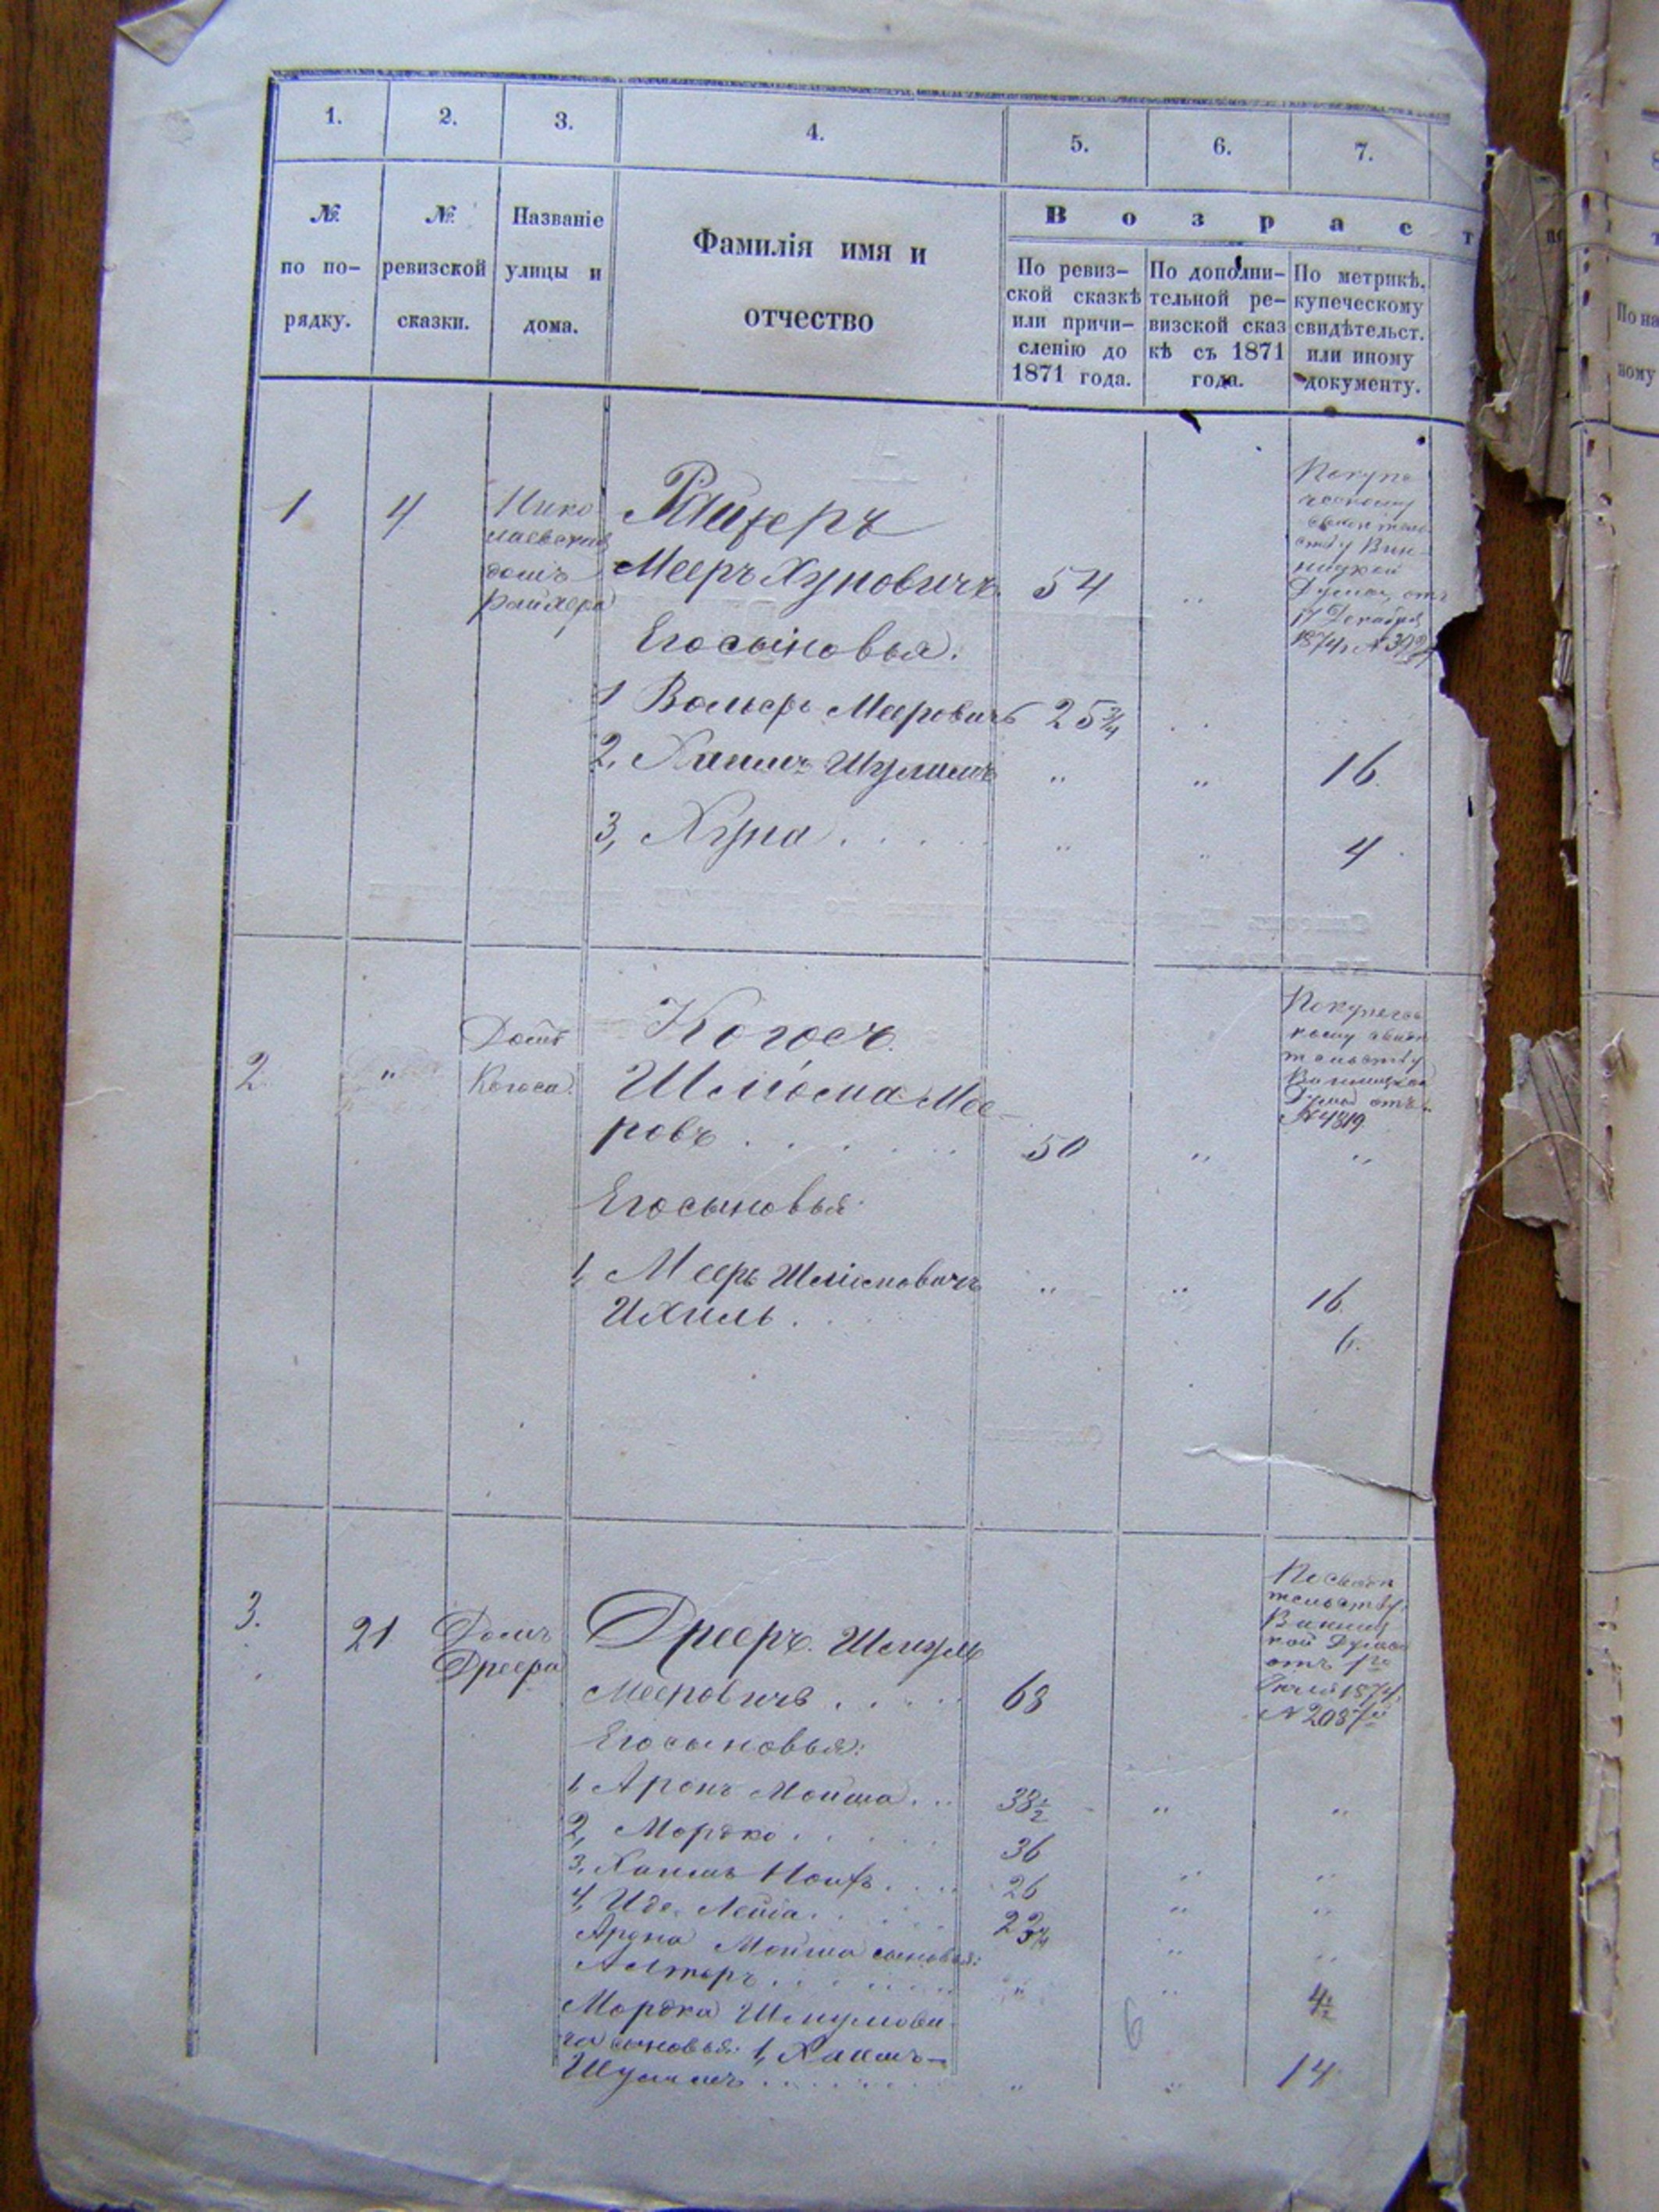 1.
2.
3.
4.
5.
6.
7.
№
по по-
рядку.
№
ревизской
сказки.
Названіе
улицы и
дома.
Фамилія имя и
отчество
Возраст
По ревиз-
ской сказкѣ
или причи-
сленію до
1871 года.
По дополни-
тельной ре-
визской сказ
кѣ съ 1871
года.
По метрикѣ,
купеческому
свидѣтельст.
или иному
документу.
1
4
Нико
лаевская
домъ
Райхера
Райхеръ
Мееръ Хуновичъ
54
Покупе
ческому
свидѣтель
ству Вин-
ницкой
Думы отъ
17 Декабря
1874
Его сыновья:
1 Вольфъ Меровичъ 25 3/4
2, Хаимъ Шулимъ " " 16
3, Хуна . . . . . " " 4
2
"
Домъ
Когоса
Когосъ
Шліома Мее-
ровъ . . . . . 50 " "
Покупечес
кому свидѣ
тельству
Винницкой
Думы отъ
№ 4819
Его сыновья
1, Мееръ Шліомовичъ " " 16
Ихиль . . . 6
3.
21
Домъ
Дреера
Дрееръ. Шмуль
Мееровичъ . . . . 68
По свидѣ
тельству
Винниц
кой Думы
отъ 1го
1874
№ 2087
Его сыновья:
1, Аронъ Мойша . . . 38 1/2 " "
2, Мордко . . . . . 36 " "
3, Хаимъ Иоифъ . . . . 26 " "
4, Лейба . . . . . 22 3/4 " "
Арона Мойша сыновья:
Алтеръ . . . . . . " " 4 1/2
Мордка Шмулеви
ча сыновья: 1, Хаимъ-
Шулимъ . . . . . . " " 14
6